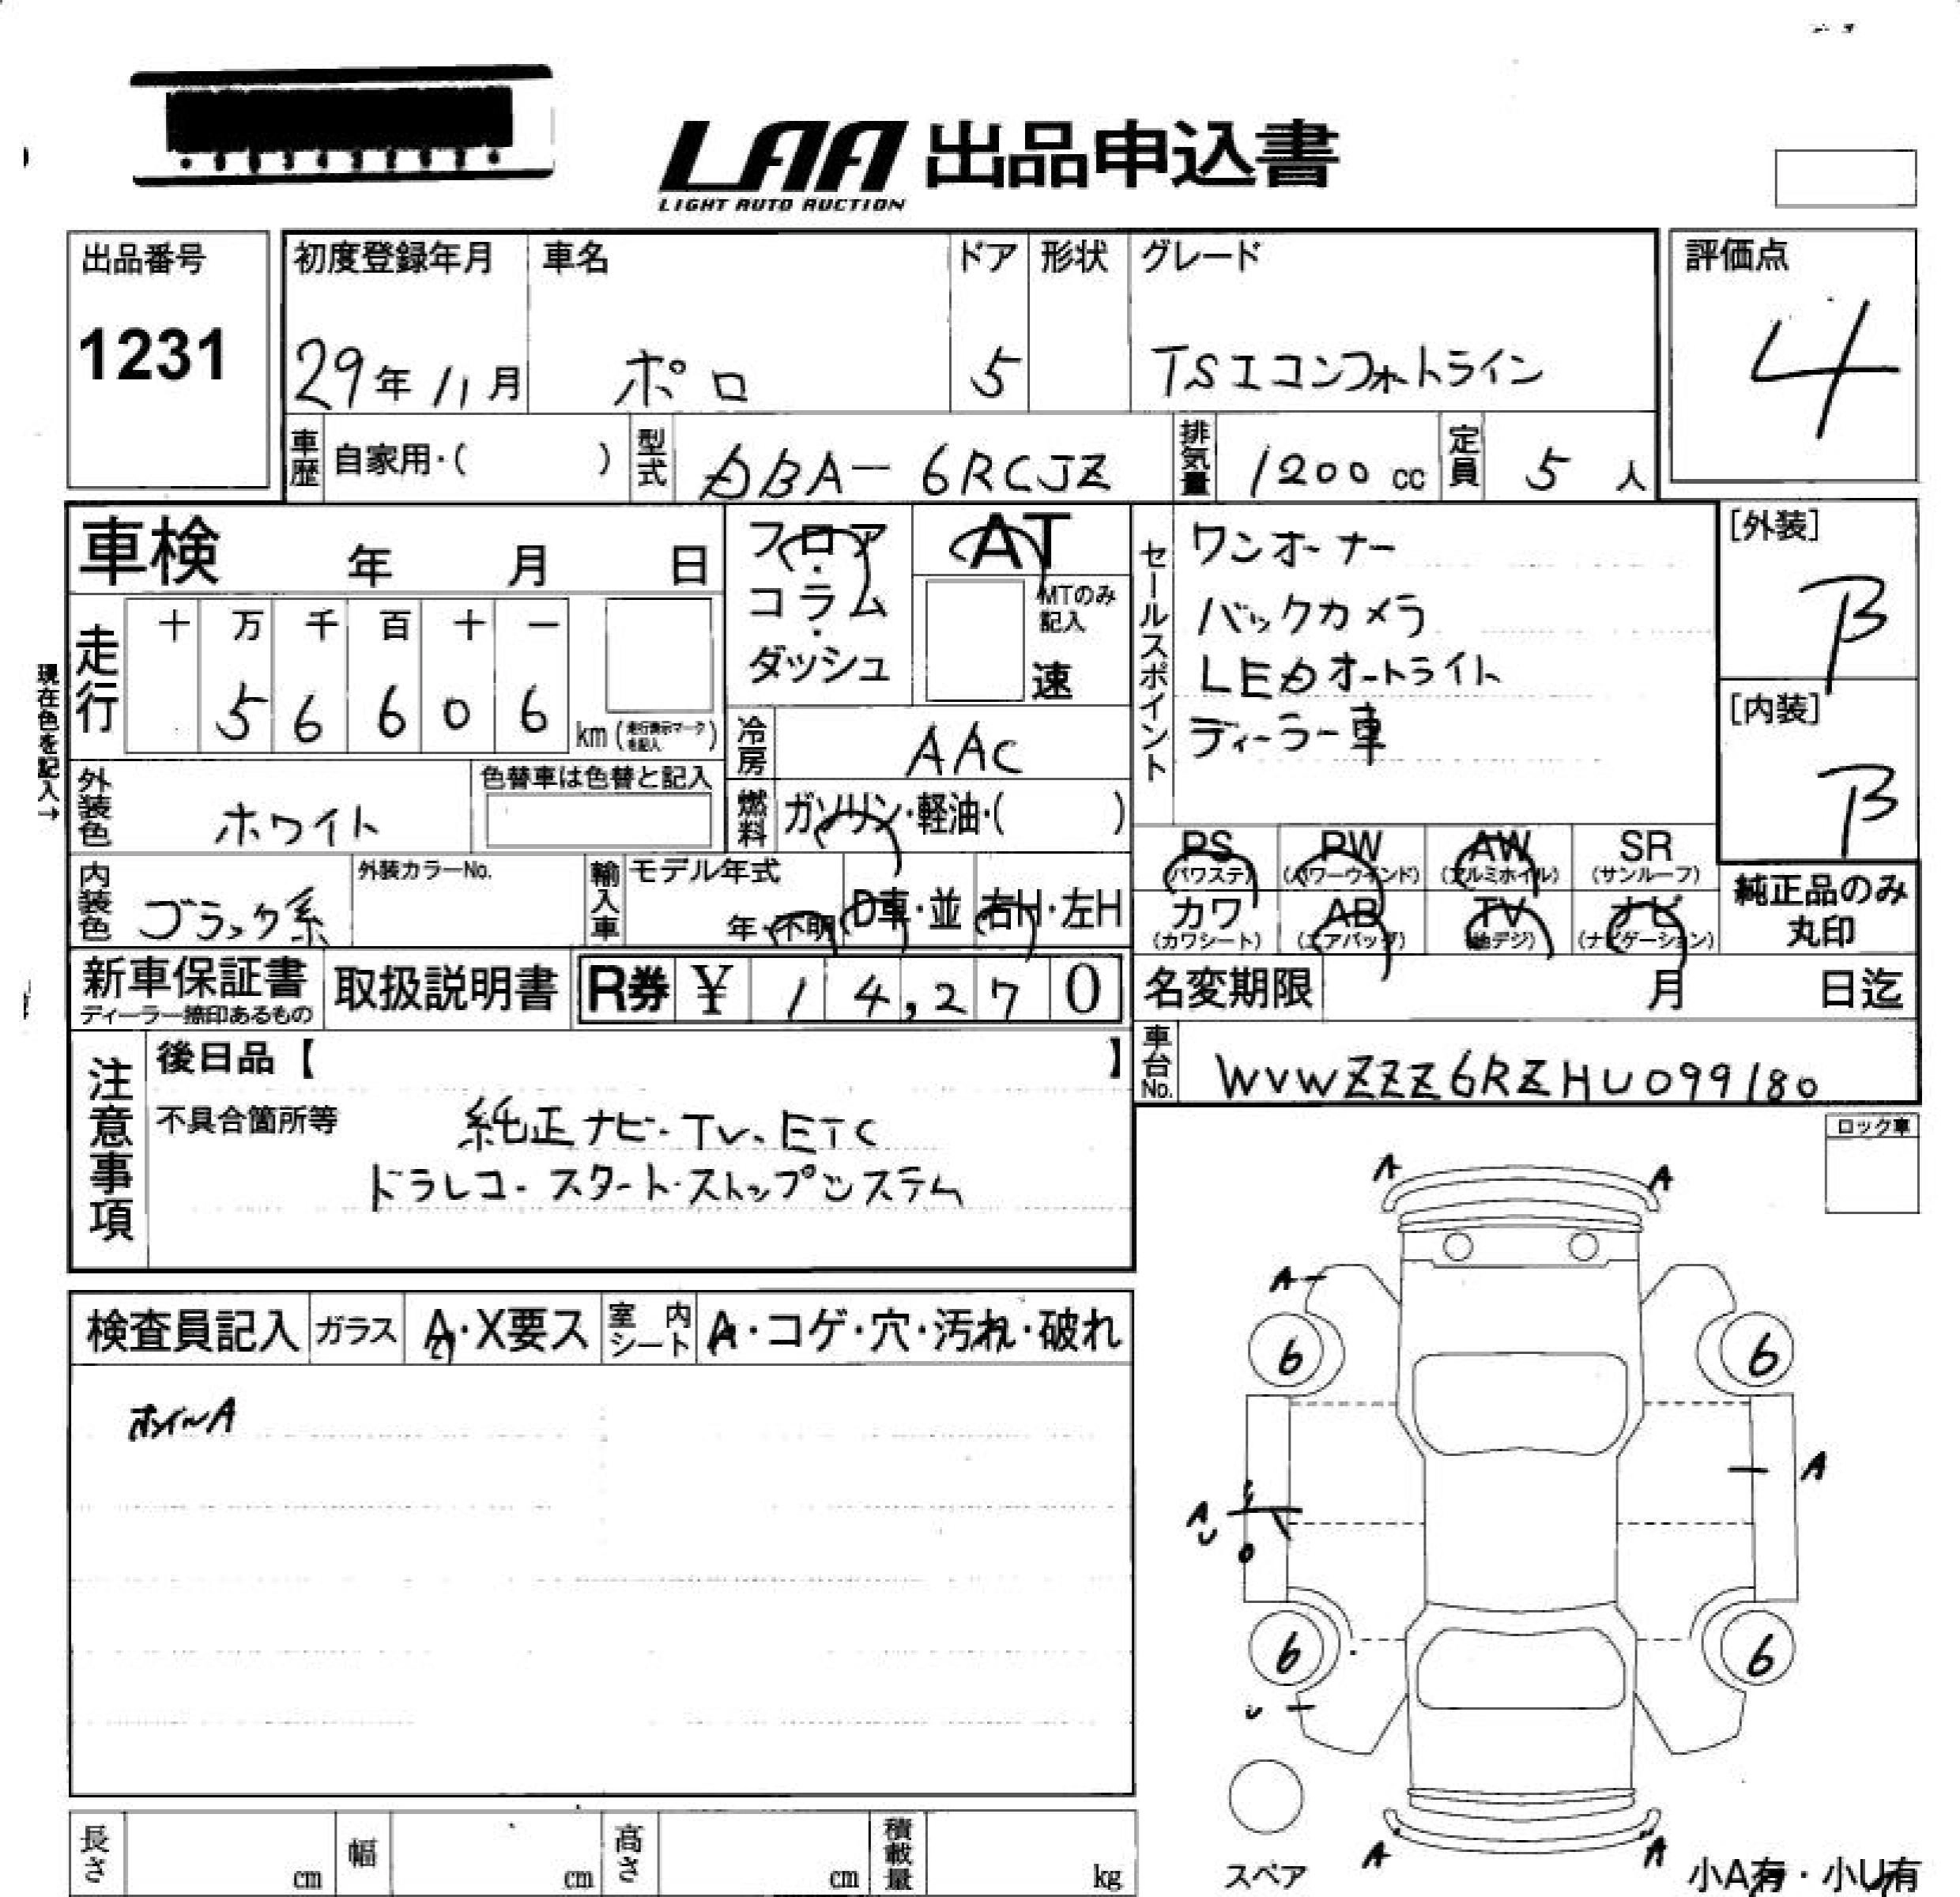 LAA 出品申込書
LIGHT AUTO AUCTION
出品番号
1231
初度登録年月
29年11月
車名
ポロ
ドア
5
形状
グレード
TSIコンフォートライン
評価点
4
車歴 自家用・( )
型式 DBA-6RCJZ
排気量 1200 cc
定員 5 人
車検 年 月 日
フロア・コラム・ダッシュ
AT
MTのみ記入
速
セールスポイント
ワンオーナー
バックカメラ
LEDオートライト
ディーラー車
[外装]
B
[内装]
B
現在色を記入→
走行
十 万 千 百 十 一
5 6 6 0 6
km (走行表示マークを記入)
冷房 AAC
外装色 ホワイト
色替車は色替と記入
燃料 ガソリン・軽油・( )
PS (パワステ)
PW (パワーウインド)
AW (アルミホイル)
SR (サンルーフ)
カワ (カワシート)
AB (エアバッグ)
TV (地デジ)
ナビ (ナビゲーション)
純正品のみ丸印
内装色 ブラック系
外装カラーNo.
輸入車
モデル年式
年・不明
D車・並
右H・左H
新車保証書
ディーラー捺印あるもの
取扱説明書
R券 ¥ 14,270
名変期限 月 日迄
車台No. WVWZZZ6RZHU099180
注意事項
後日品【 】
不具合箇所等
純正ナビ・TV、ETC
ドラレコ・スタート・ストップシステム
ロック車
検査員記入
ガラス A・X要ス
室内シート A・コゲ・穴・汚れ・破れ
ホイールA
A A
A
6 6
A
A
U
6 6
U
A A
スペア
小A有・小U有
長さ cm
幅 cm
高さ cm
積載量 kg